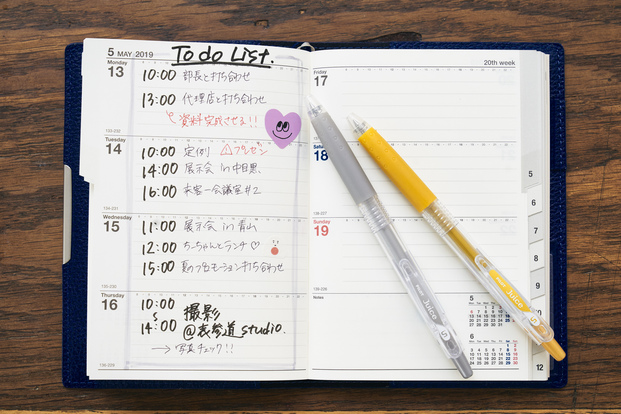 5 MAY 2019
To do List.
20th week
Monday
13
10:00 部長と打ち合わせ
13:00 代理店と打ち合わせ
資料完成させる!!
Tuesday
14
10:00 定例 ⚠プレゼン
14:00 展示会 in 中目黒
16:00 来客 一会議室#2
Wednesday
15
11:00 展示会 in 青山
12:00 ちーちゃんとランチ♡
15:00 夏のプロモーション打ち合わせ
Thursday
16
10:00
14:00 撮影
@表参道 studio.
→写真チェック!!
Friday
17
18
Sunday
19
Notes
5
6
7
8
9
10
11
12
Juice
Juice
5
6